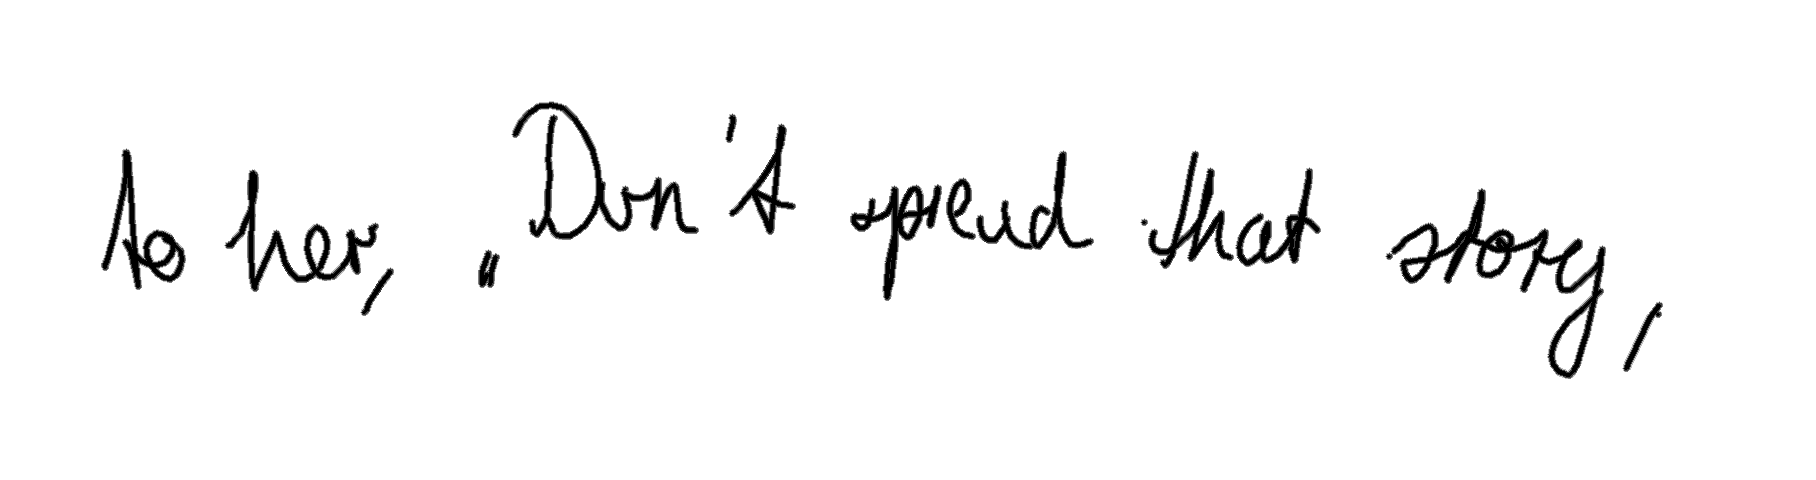 to her, „Don't spend that story,